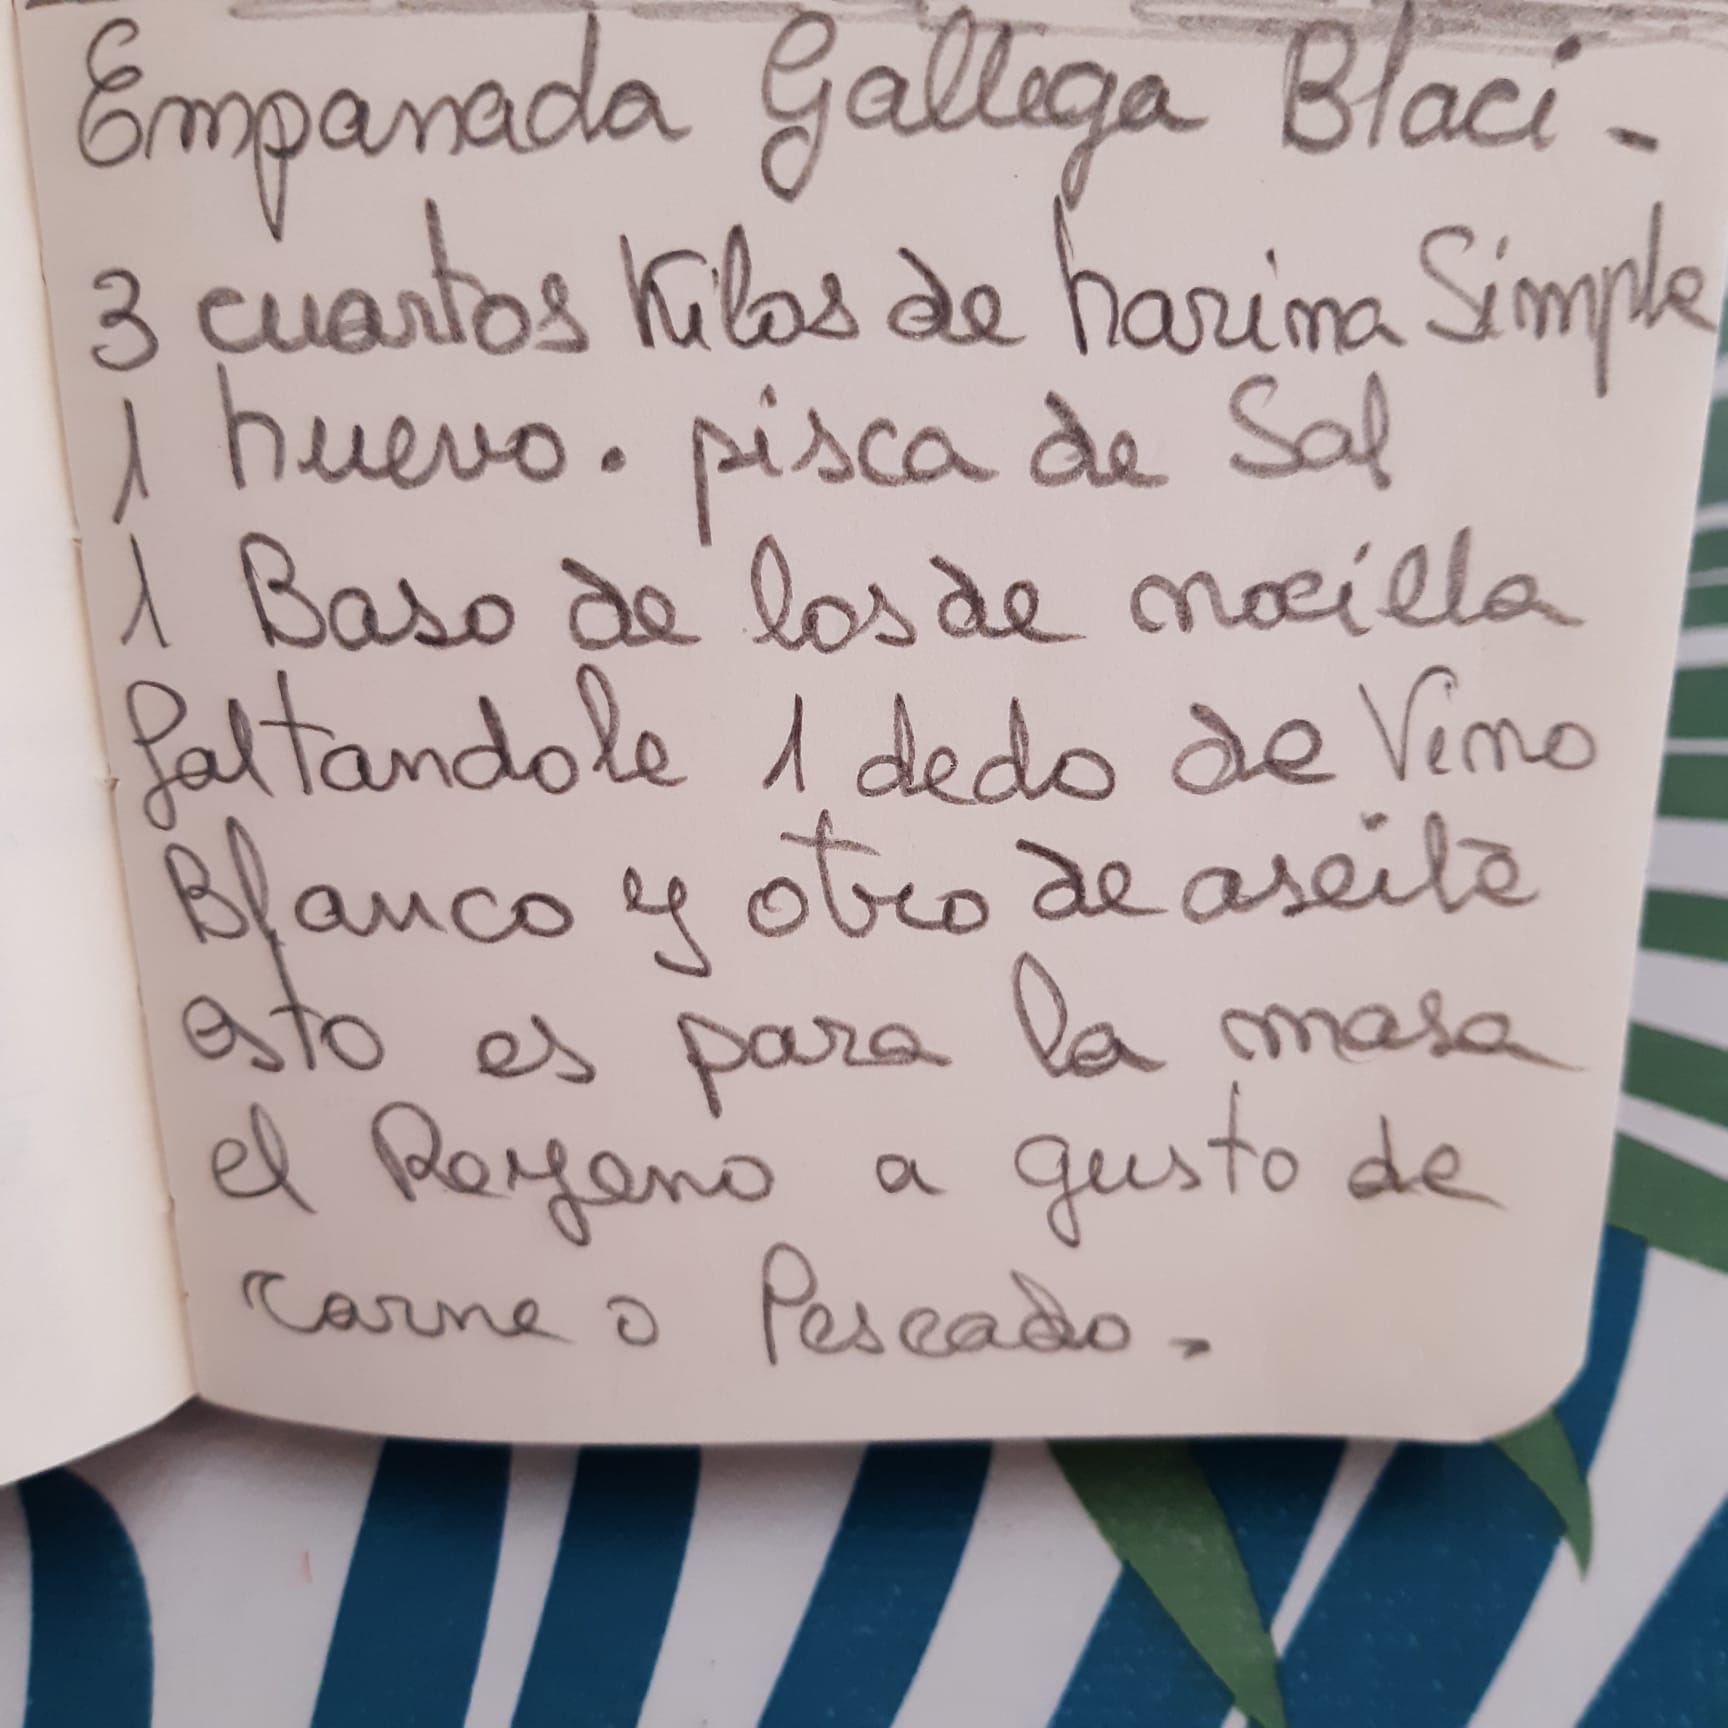 Empanada Gallega Blaci -
3 cuartos Kilos de harina Simple
1 huevo. pisca de Sal
1 Baso de los de nocilla
faltandole 1 dedo de Vino
Blanco y otro de aseite
esto es para la masa
el Reyeno a gusto de
carne o Pescado.